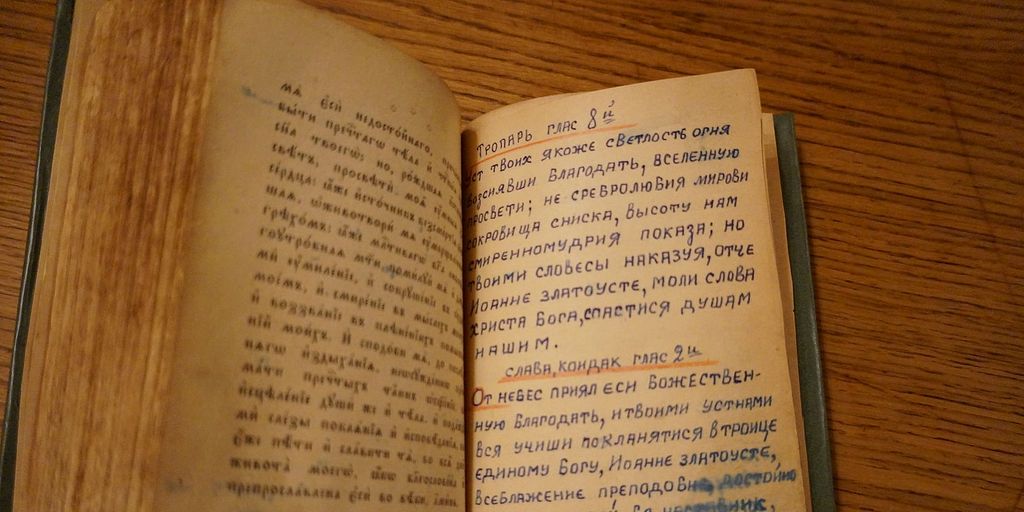 мѧ̀ є҆сѝ недостойнаго,
бы́ти пречⷭ҇тагѡ тѣ́ла и҆
сн҃а твоегѡ̀: но, ро́ждшаѧ
свѣ́тъ, просвѣтѝ моѧ̑
се́рдца: ꙗ҆́же и҆сто́чникъ безсме́ртїѧ
шаѧ, ѡ҆животворѝ мѧ̀
грѣхо́мъ: ꙗ҆́же млⷭ҇тиваго бг҃а
поми́лꙋй мѧ̀
мѝ ᲂу҆миле́нїе, и҆ сокрꙋше́нїе въ
мое́мъ, и҆ смире́нїе въ мы́слехъ
и҆ воззва́нїе въ плѣне́нїихъ
нїй мои́хъ. и҆ сподо́би мѧ̀, до
нѧгѡ и҆здыха́нїѧ,
ма́ти пречⷭ҇тыхъ та̑инъ
и҆сцѣле́нїе дꙋшѝ же и҆ тѣ́ла. и҆
мѝ сле́зы покаѧ́нїѧ и҆ и҆сповѣ́данїѧ,
є҆́же пѣ́ти и҆ сла́вити тѧ̀, во всѧ̑
живота̀ моегѡ̀, ꙗ҆́кѡ благослове́на
препросла́влена є҆сѝ во вѣ́ки, а҆ми́нь.
Тропарь глас 8й
Уст твоих якоже светлость огня
возсиявши благодать, вселенную
просвети; не сребролюбия мирови
сокровища сниска, высоту нам
смиренномудрия показа; но
твоими словесы наказуя, отче
Иоанне златоусте, моли слова
христа бога, спастися душам
нашим.
слава, кондак глас 2й
От небес приял еси божествен-
ную благодать, и твоими устнами
вся учиши покланятися в троице
единому богу, Иоанне златоусте,
всеблажение преподобне, достойно
наставник,